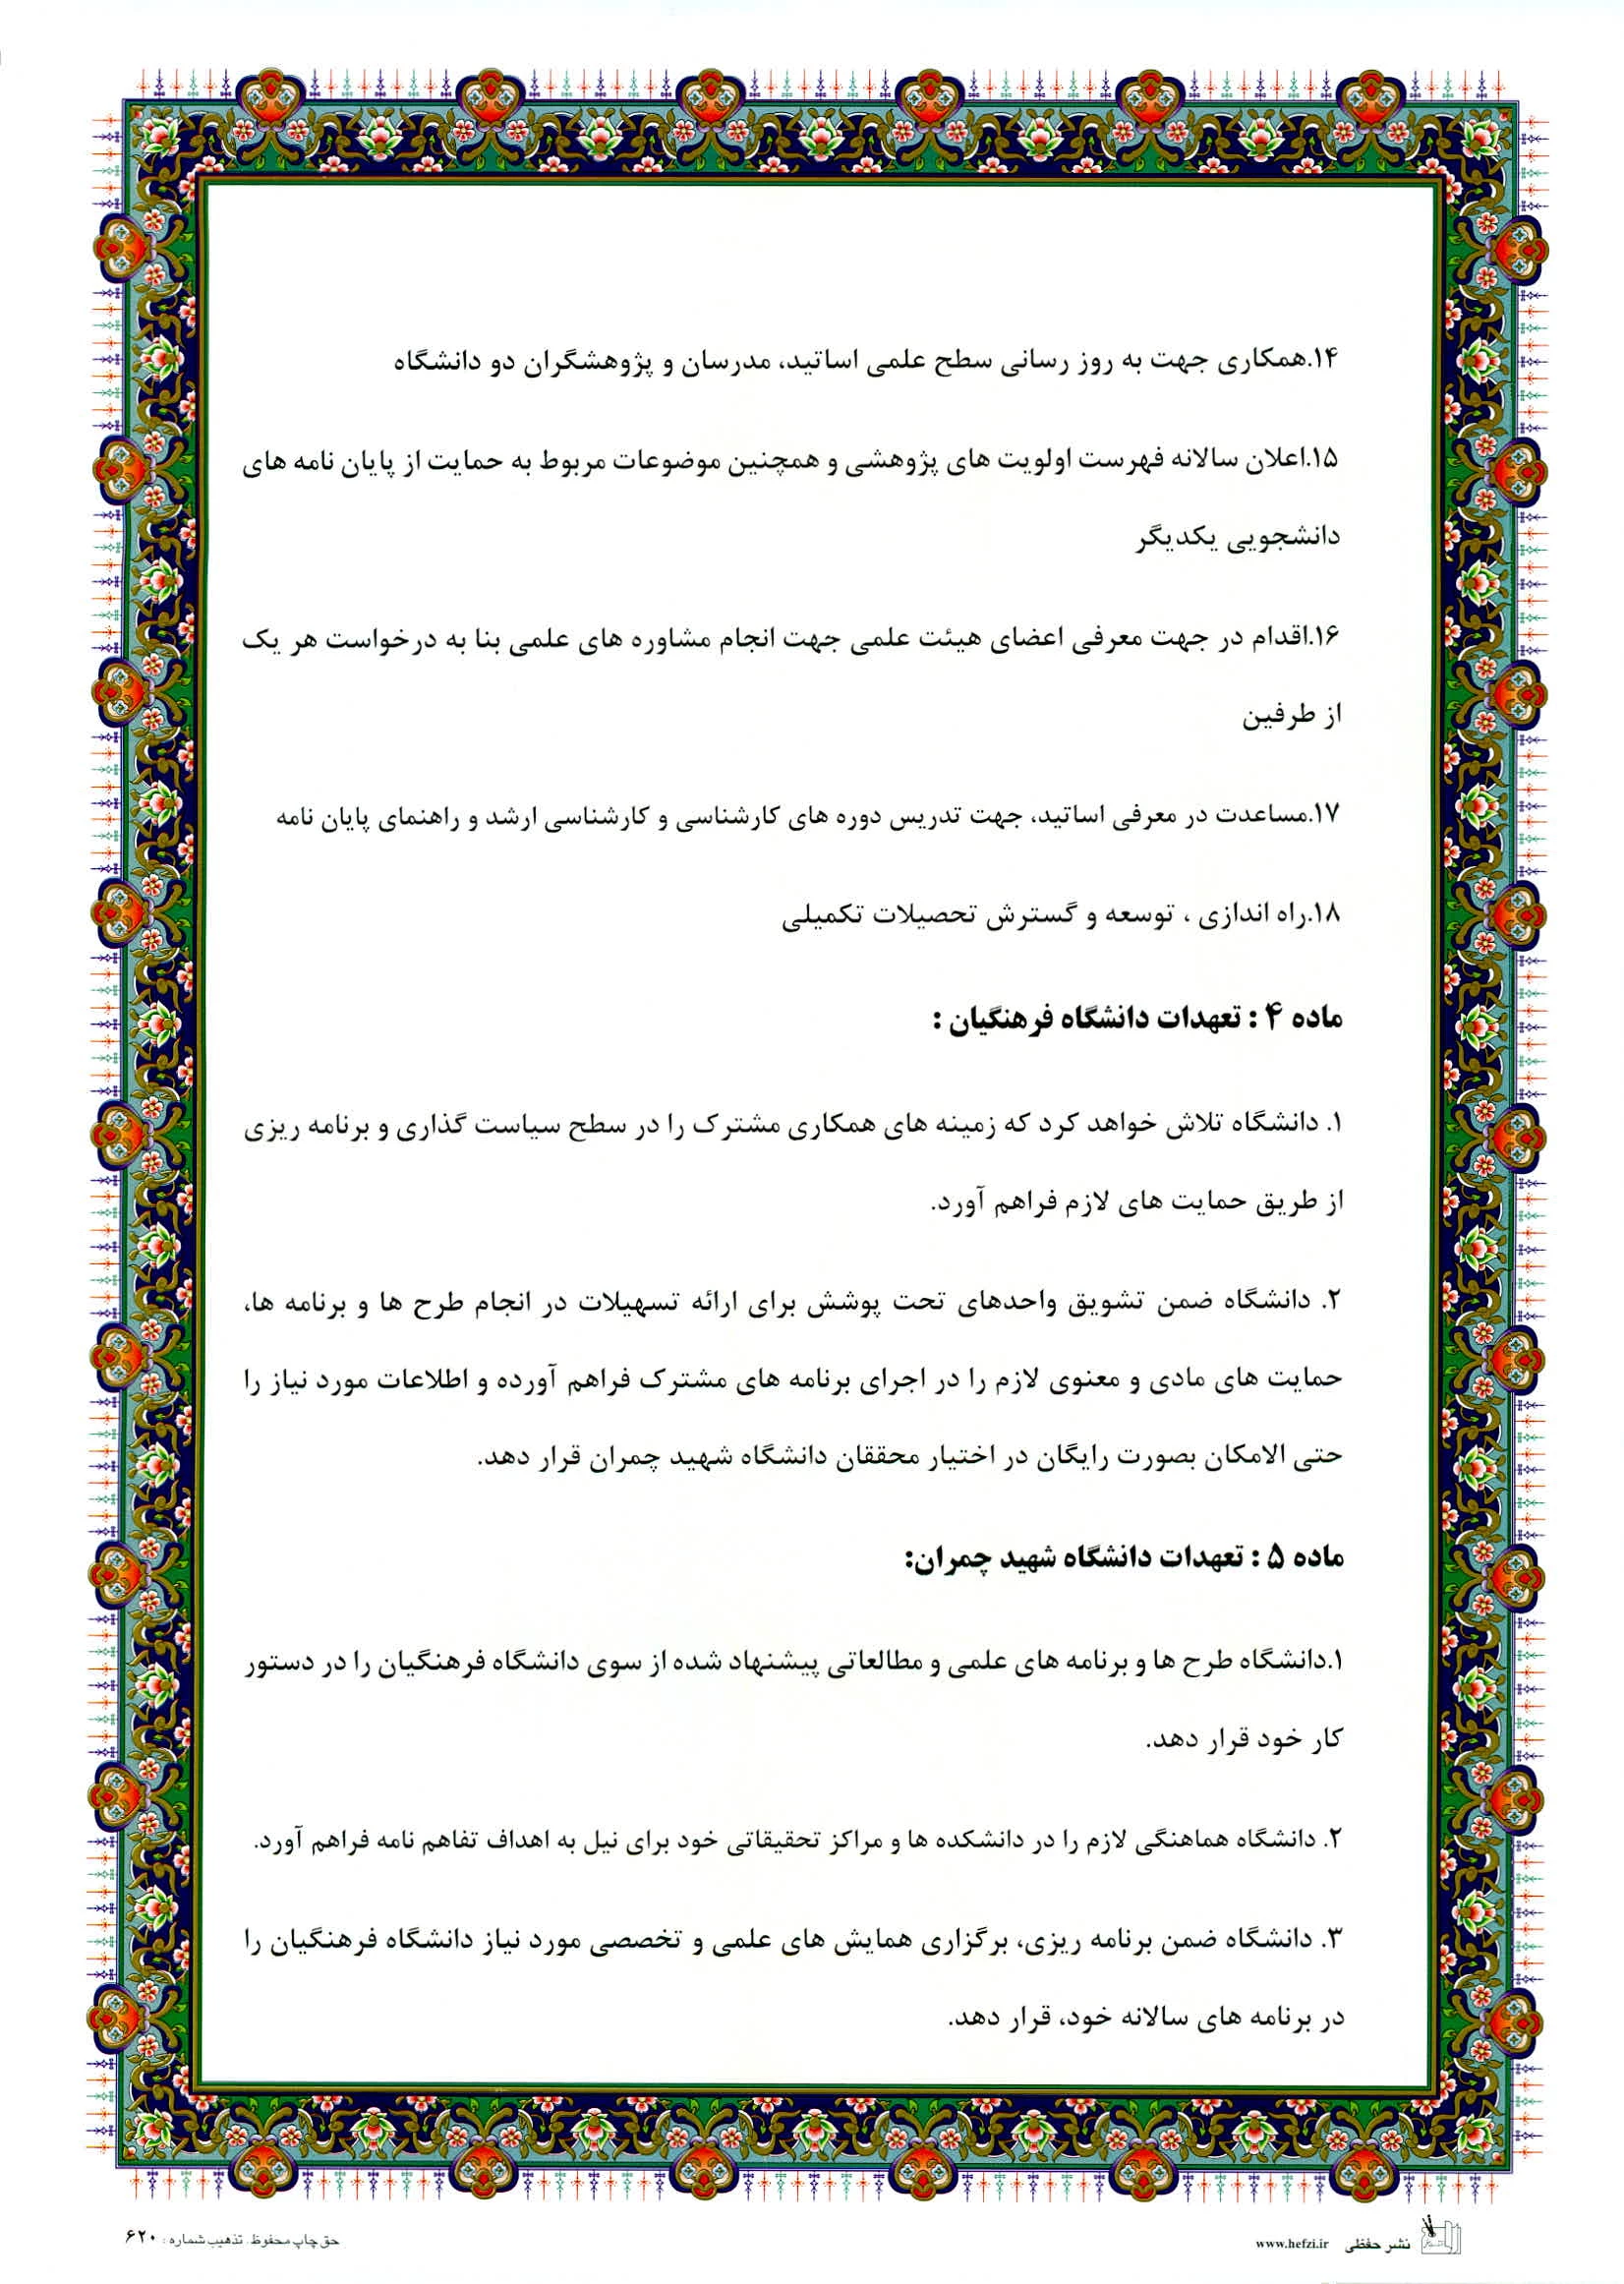 ۱۴.همکاری جهت به روز رسانی سطح علمی اساتید، مدرسان و پژوهشگران دو دانشگاه
۱۵.اعلان سالانه فهرست اولویت های پژوهشی و همچنین موضوعات مربوط به حمایت از پایان نامه های
دانشجویی یکدیگر
۱۶.اقدام در جهت معرفی اعضای هیئت علمی جهت انجام مشاوره های علمی بنا به درخواست هر یک
از طرفین
۱۷.مساعدت در معرفی اساتید، جهت تدریس دوره های کارشناسی و کارشناسی ارشد و راهنمای پایان نامه
۱۸.راه اندازی ، توسعه و گسترش تحصیلات تکمیلی
ماده ۴ : تعهدات دانشگاه فرهنگیان :
۱. دانشگاه تلاش خواهد کرد که زمینه های همکاری مشترک را در سطح سیاست گذاری و برنامه ریزی
از طریق حمایت های لازم فراهم آورد.
۲. دانشگاه ضمن تشویق واحدهای تحت پوشش برای ارائه تسهیلات در انجام طرح ها و برنامه ها،
حمایت های مادی و معنوی لازم را در اجرای برنامه های مشترک فراهم آورده و اطلاعات مورد نیاز را
حتی الامکان بصورت رایگان در اختیار محققان دانشگاه شهید چمران قرار دهد.
ماده ۵ : تعهدات دانشگاه شهید چمران:
۱.دانشگاه طرح ها و برنامه های علمی و مطالعاتی پیشنهاد شده از سوی دانشگاه فرهنگیان را در دستور
کار خود قرار دهد.
۲. دانشگاه هماهنگی لازم را در دانشکده ها و مراکز تحقیقاتی خود برای نیل به اهداف تفاهم نامه فراهم آورد.
۳. دانشگاه ضمن برنامه ریزی، برگزاری همایش های علمی و تخصصی مورد نیاز دانشگاه فرهنگیان را
در برنامه های سالانه خود، قرار دهد.
نشر حفظی www.hefzi.ir
حق چاپ محفوظ. تذهیب شماره : ۶۲۰